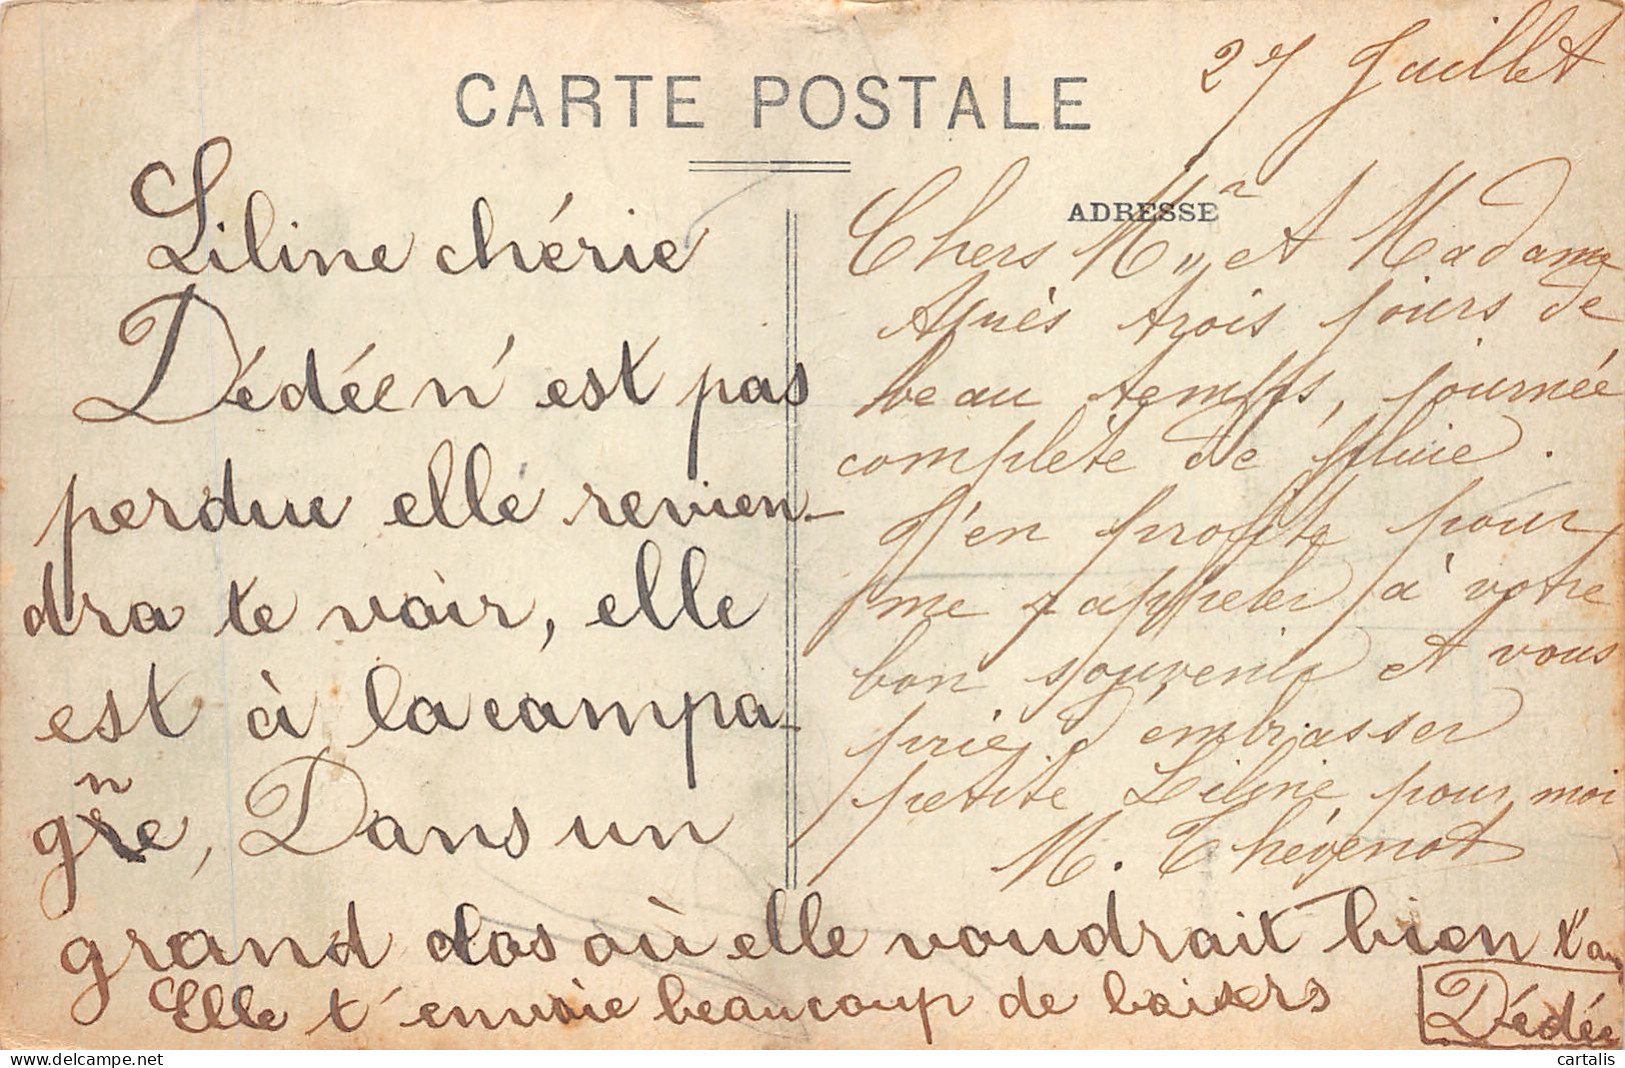 CARTE POSTALE
Liline chérie
Dédée n'est pas
perdue elle revien-
dra te voir, elle
est à la campa-
gne, Dans un
grand clos où elle voudrait bien t'av
Elle t'envoie beaucoup de baisers
Dédée
27 Juillet
ADRESSE
Chers Mr et Madame
Après trois jours de
beau temps, journée
complète de pluie.
J'en profite pour
me rappeler à votre
bon souvenir et vous
prie d'embrasser
petite Liline pour moi
M. Thévenot
cartalis